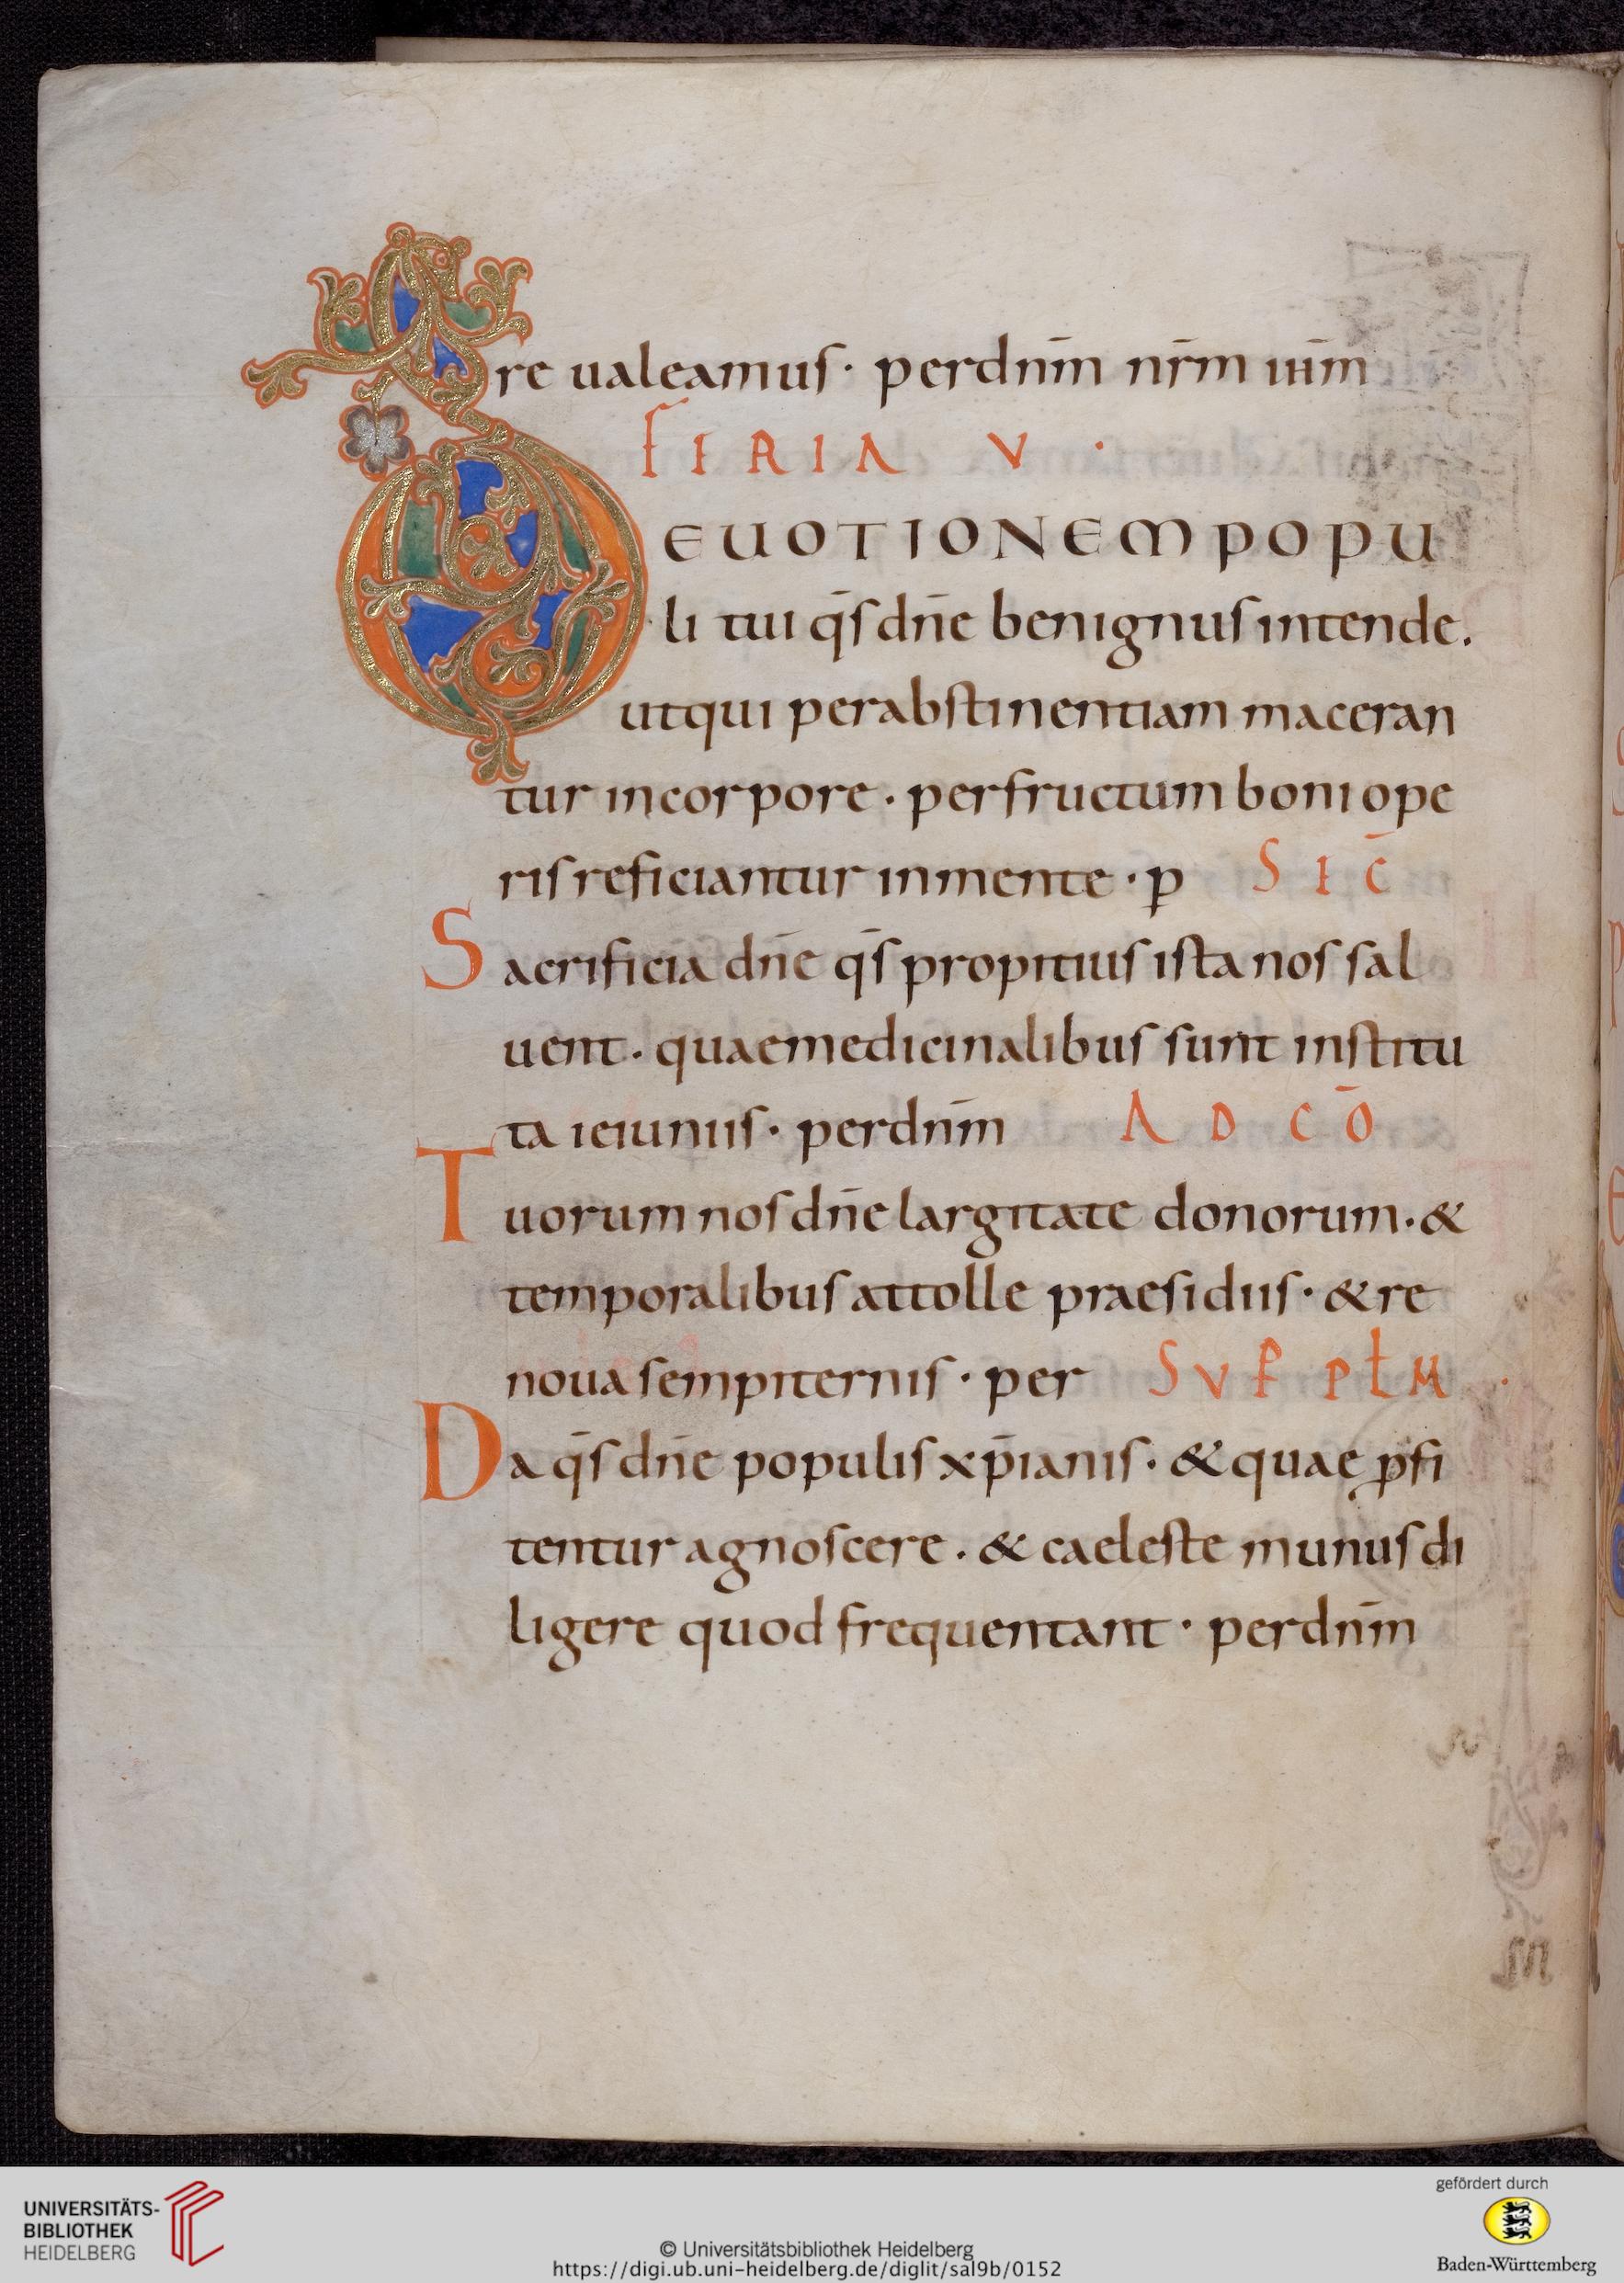 re ualeamus · perdnm̄ nr̄m ihm̄
FERIA V ·
DEUOTIONEM POPU
li tui qs̄ dn̄e benignus intende.
ut qui per abstinentiam maceran
tur incorpore · per fructum boni ope
ris reficiantur inmente · p SEC̄
Sacrificia dn̄e qs̄ propitius ista nos sal
uent · quae medicinalibus sunt institu
ta ieiuniis · perdnm̄ AD CŌ
Tuorum nos dn̄e largitate donorum · &
temporalibus attolle praesidiis · & re
noua sempiternis · per SUP PŁM ·
Da qs̄ dn̄e populis xp̄ianis · & quae ꝓfi
tentur agnoscere · & caeleste munus di
ligere quod frequentant · perdnm̄
UNIVERSITÄTS-
BIBLIOTHEK
HEIDELBERG
© Universitätsbibliothek Heidelberg
https://digi.ub.uni-heidelberg.de/diglit/sal9b/0152
gefördert durch
Baden-Württemberg